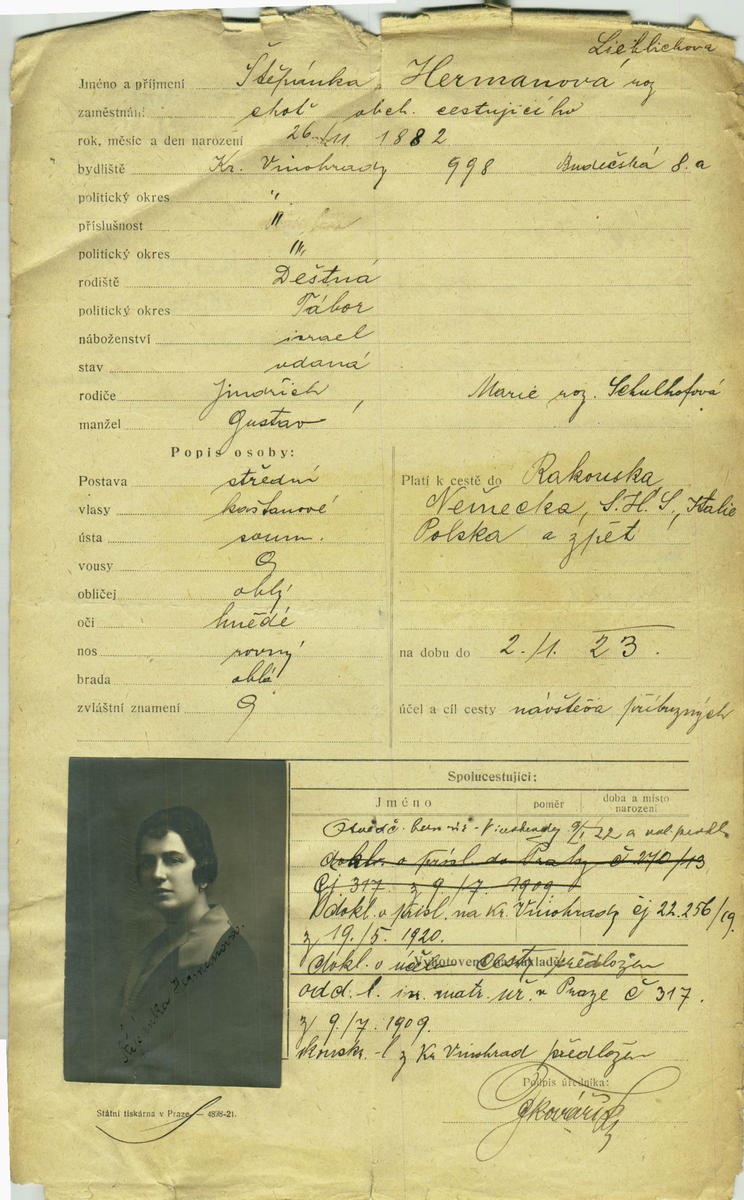 Liehlichova
Jméno a příjmení Štěpánka Hermanová roz
zaměstnání choť obch. cestujícího
rok, měsíc a den narození 26./11 1882
bydliště Kr. Vinohrady 998 Budečská 8.a
politický okres "
příslušnost "
politický okres "
rodiště Deštná
politický okres Tábor
náboženství israel
stav vdaná
rodiče Jindřich, Marie roz. Schulhofová
manžel Gustav
Popis osoby:
Postava střední
vlasy kaštanové
ústa soum.
vousy
obličej oblý
oči hnědé
nos rovný
brada oblá
zvláštní znamení
Platí k cestě do Rakouska,
Německa, S.H.S., Italie
Polska a zpět
na dobu do 2./1. 23.
účel a cíl cesty návštěva příbuzných
Spolucestující:
Jméno poměr doba a místo narození
Vinohrady 9/I 22 a
dokl. o přísl do Prahy č 270/13
čj 317 z 9/7. 1909
dokl. o přísl. na Kr. Vinohrady čj 22.256/19.
z 19./5. 1920.
Vyhotoveno na základě:
dokl. o cesty předložen
odd. l. iz. matr. uř. v Praze č 317.
z 9./7. 1909.
z Kr Vinohrad předložen
Podpis úředníka:
Štěpánka Hermanová.
Státní tiskárna v Praze — 4898-21.